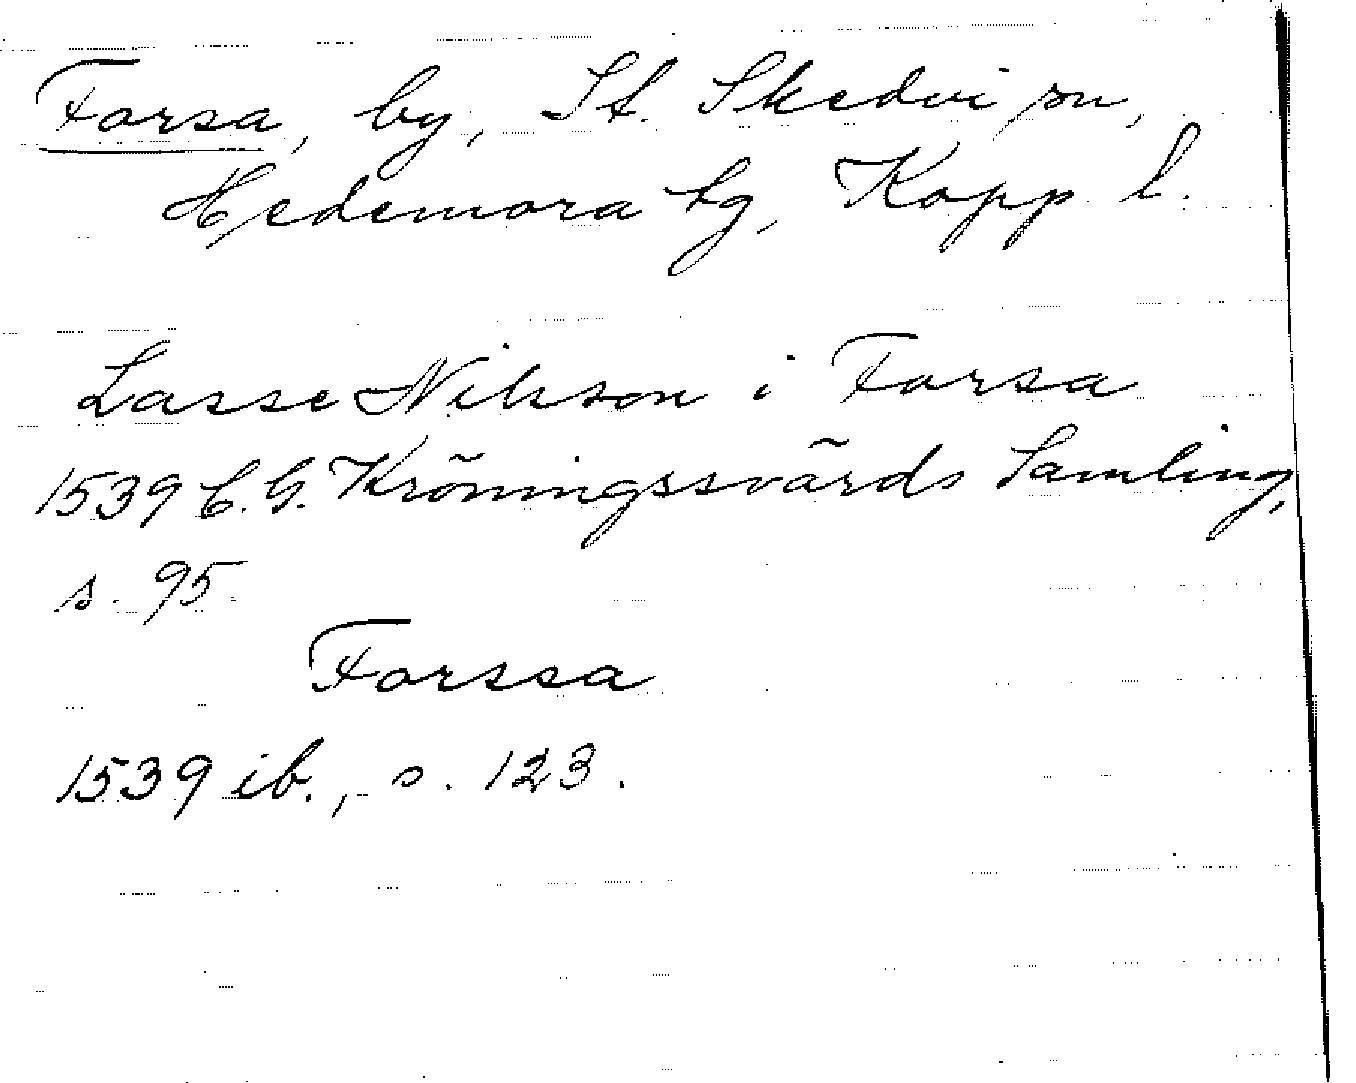 Forsa, by, St. Skedvi sn,
Hedemora tg, Kopp. l.
Lasse Nilsson i Forsa
1539 C. G. Kröningssvärds Samling,
s. 95.
Forssa
1539 ib., s. 123.